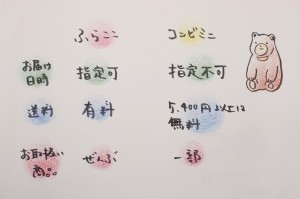 ふらここ　コンビミニ
お届け
日時　指定可　指定不可
送料　有料　5,400円以上は
無料
お取扱い
商品　ぜんぶ　一部